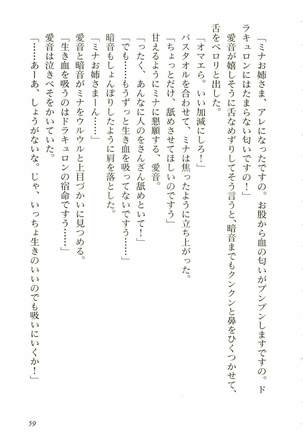 「ミナお姉さま、アレになったですの。お股から血の匂いがプンプンしますですの。ド
ラキュロンにはたまらない匂いですの！」
愛音が嬉しそうに舌なめずりしてそう言うと、暗音までもクンクンと鼻をひくつかせて、
舌をペロリと出した。
「オマエら。いい加減にしろ！」
バスタオルを合わせて、ミナは焦ったように立ち上がった。
「ちょっとだけ、舐めさせてほしいのですう」
甘えるようにミナに懇願する、愛音。
「ったく、あんなに人のをさんざん舐めといて！」
「でも……もうずっと生き血を吸ってないですう……」
暗音もしょんぼりしたように肩を落とした。
「ミナお姉さまーん……」
愛音と暗音がミナをウルウルと上目づかいに見つめる。
「生き血を吸うのはドラキュロンの宿命ですう……」
愛音は泣きべそをかいていた。
「……あーあ、しょうがないな。じゃ、いっちょ生きのいいのでも吸いにいくか！」
59